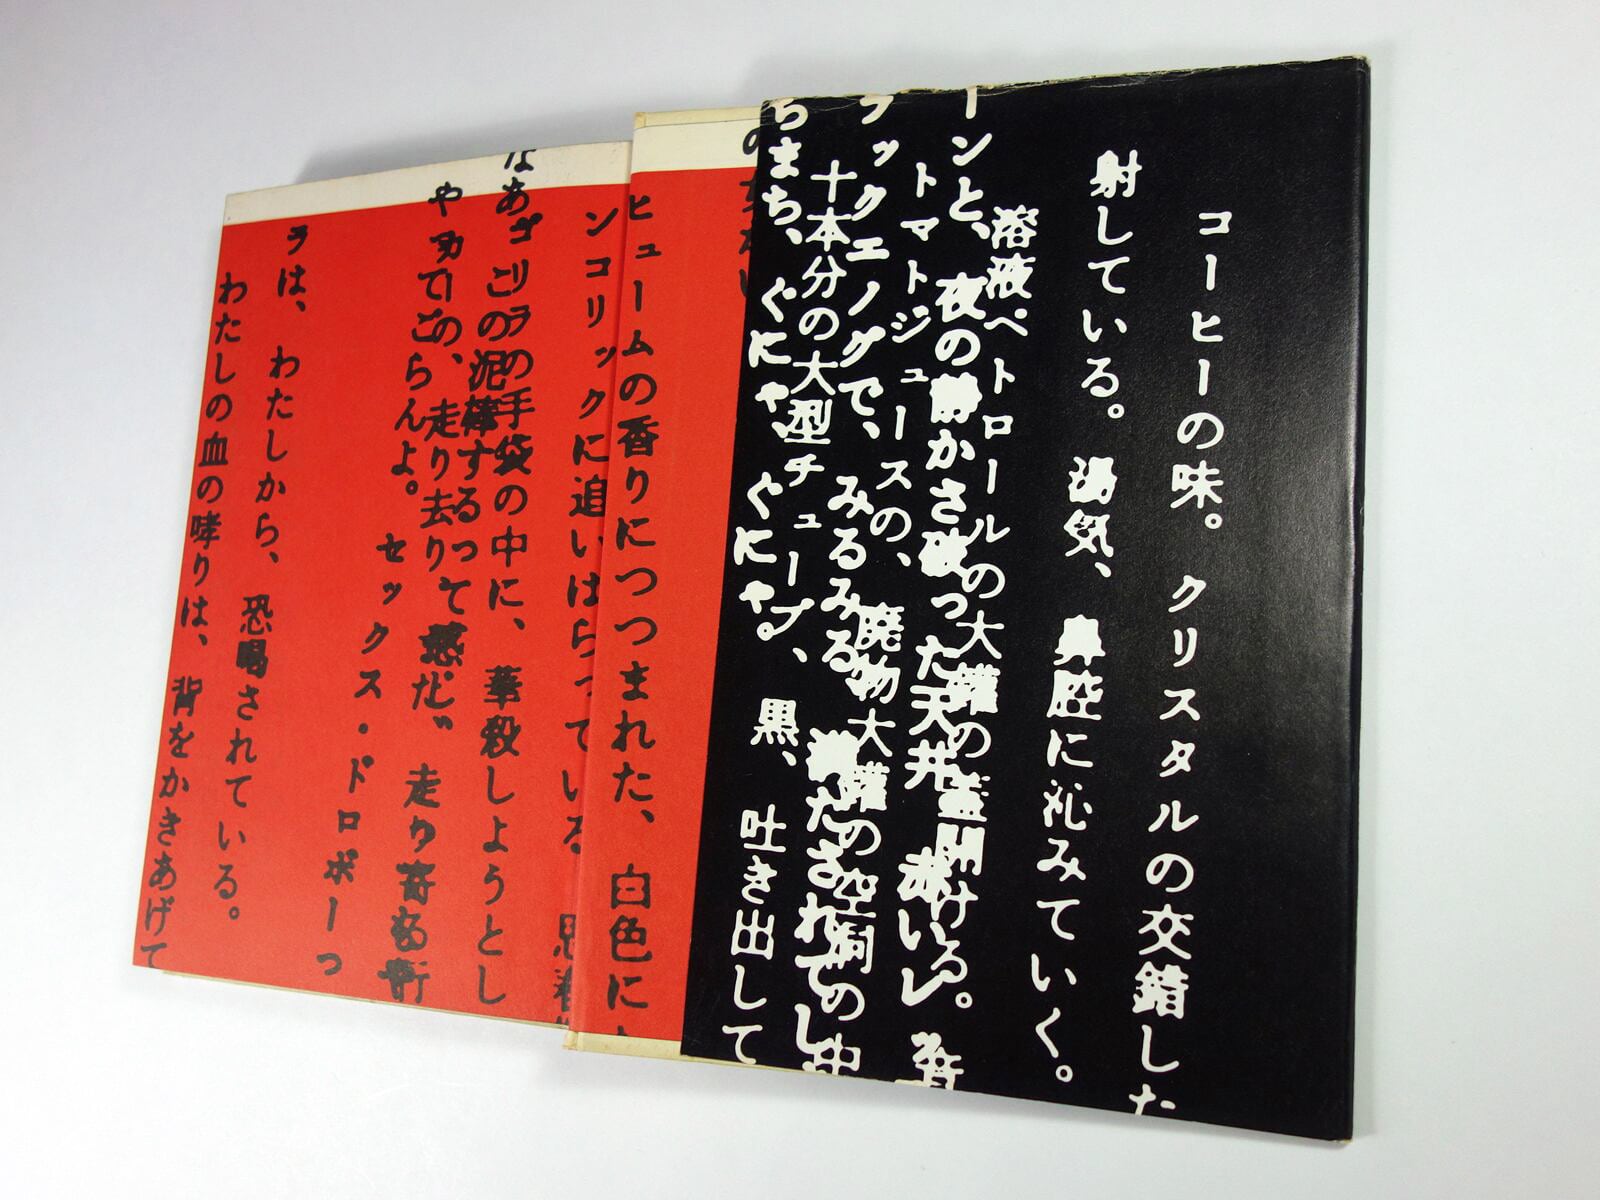 コーヒーの味。クリスタルの交錯した
射している。湯気、鼻腔に沁みていく。
溶液ペトロールの大罐の蓋開ける。
ーンと、夜の静かさ破った天井 赤いレ
トマトジュースの、廃物大罐の空洞の中
ラックエノグで、みるみる 満たされてし
十本分の大型チューブ、
ちまち、ぐにゃ、ぐにゃ。黒、吐き出して
ヒュームの香りにつつまれた、白色に
ンコリックに追いはらっている 思春
なあゴリラの手袋の中に、革殺しようとし
この泥棒するって
やの、走り去り 惑だ” 走り寄る街
てごらんよ。セックス・ドロボーっ
ラは、わたしから、恐喝されている。
わたしの血の哮りは、背をかきあげて